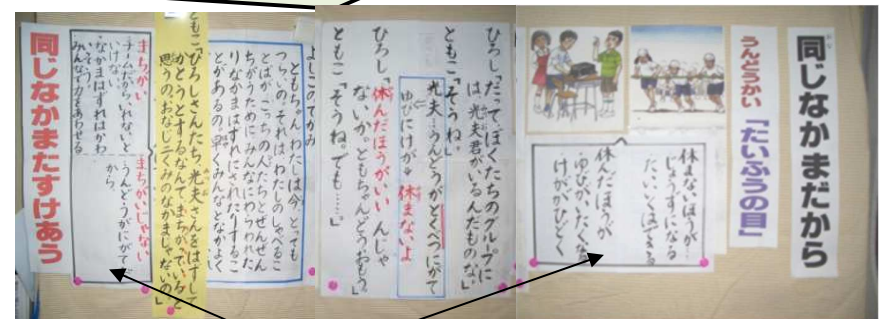 同じなかまだから
うんどうかい「たいふうの目」
休まないほうが…
じょうずになる
たいいくはできる
休んだほうが
ゆびいたくなる
けががひどく
ひろし「だって、ぼくたちのグループに
は、光夫君がいるんだものな。」
ともこ「そうね。」
光夫…うんどうがとくべつにがて
ゆびにけが→休まないよ
ひろし「休んだほうがいいんじゃ
ないか。ともちゃんどうおもう。」
ともこ「そうね。でも……。」
よしこのてがみ
ともちゃん、わたしは今、とても
つらいの。それは、わたしのしゃべるこ
とばが、こっちの人たちとぜんぜん
ちがうために、みんなにわらわれた
りなかまはずれにされたりするこ
とがあるの。早くみんなとなかよく
ともこ「ひろしさんたち、光夫さんをはずして
かとうとするなんて、まちがっていると
思うの。おなじ二くみのなかまじゃないの。」
まちがい
チームだから、いれないと
いけない
なかまはずれはかわ
いそう
みんなで力をあわせる
まちがいじゃない
うんどうがにがてだ
から
同じなかまたすけあう